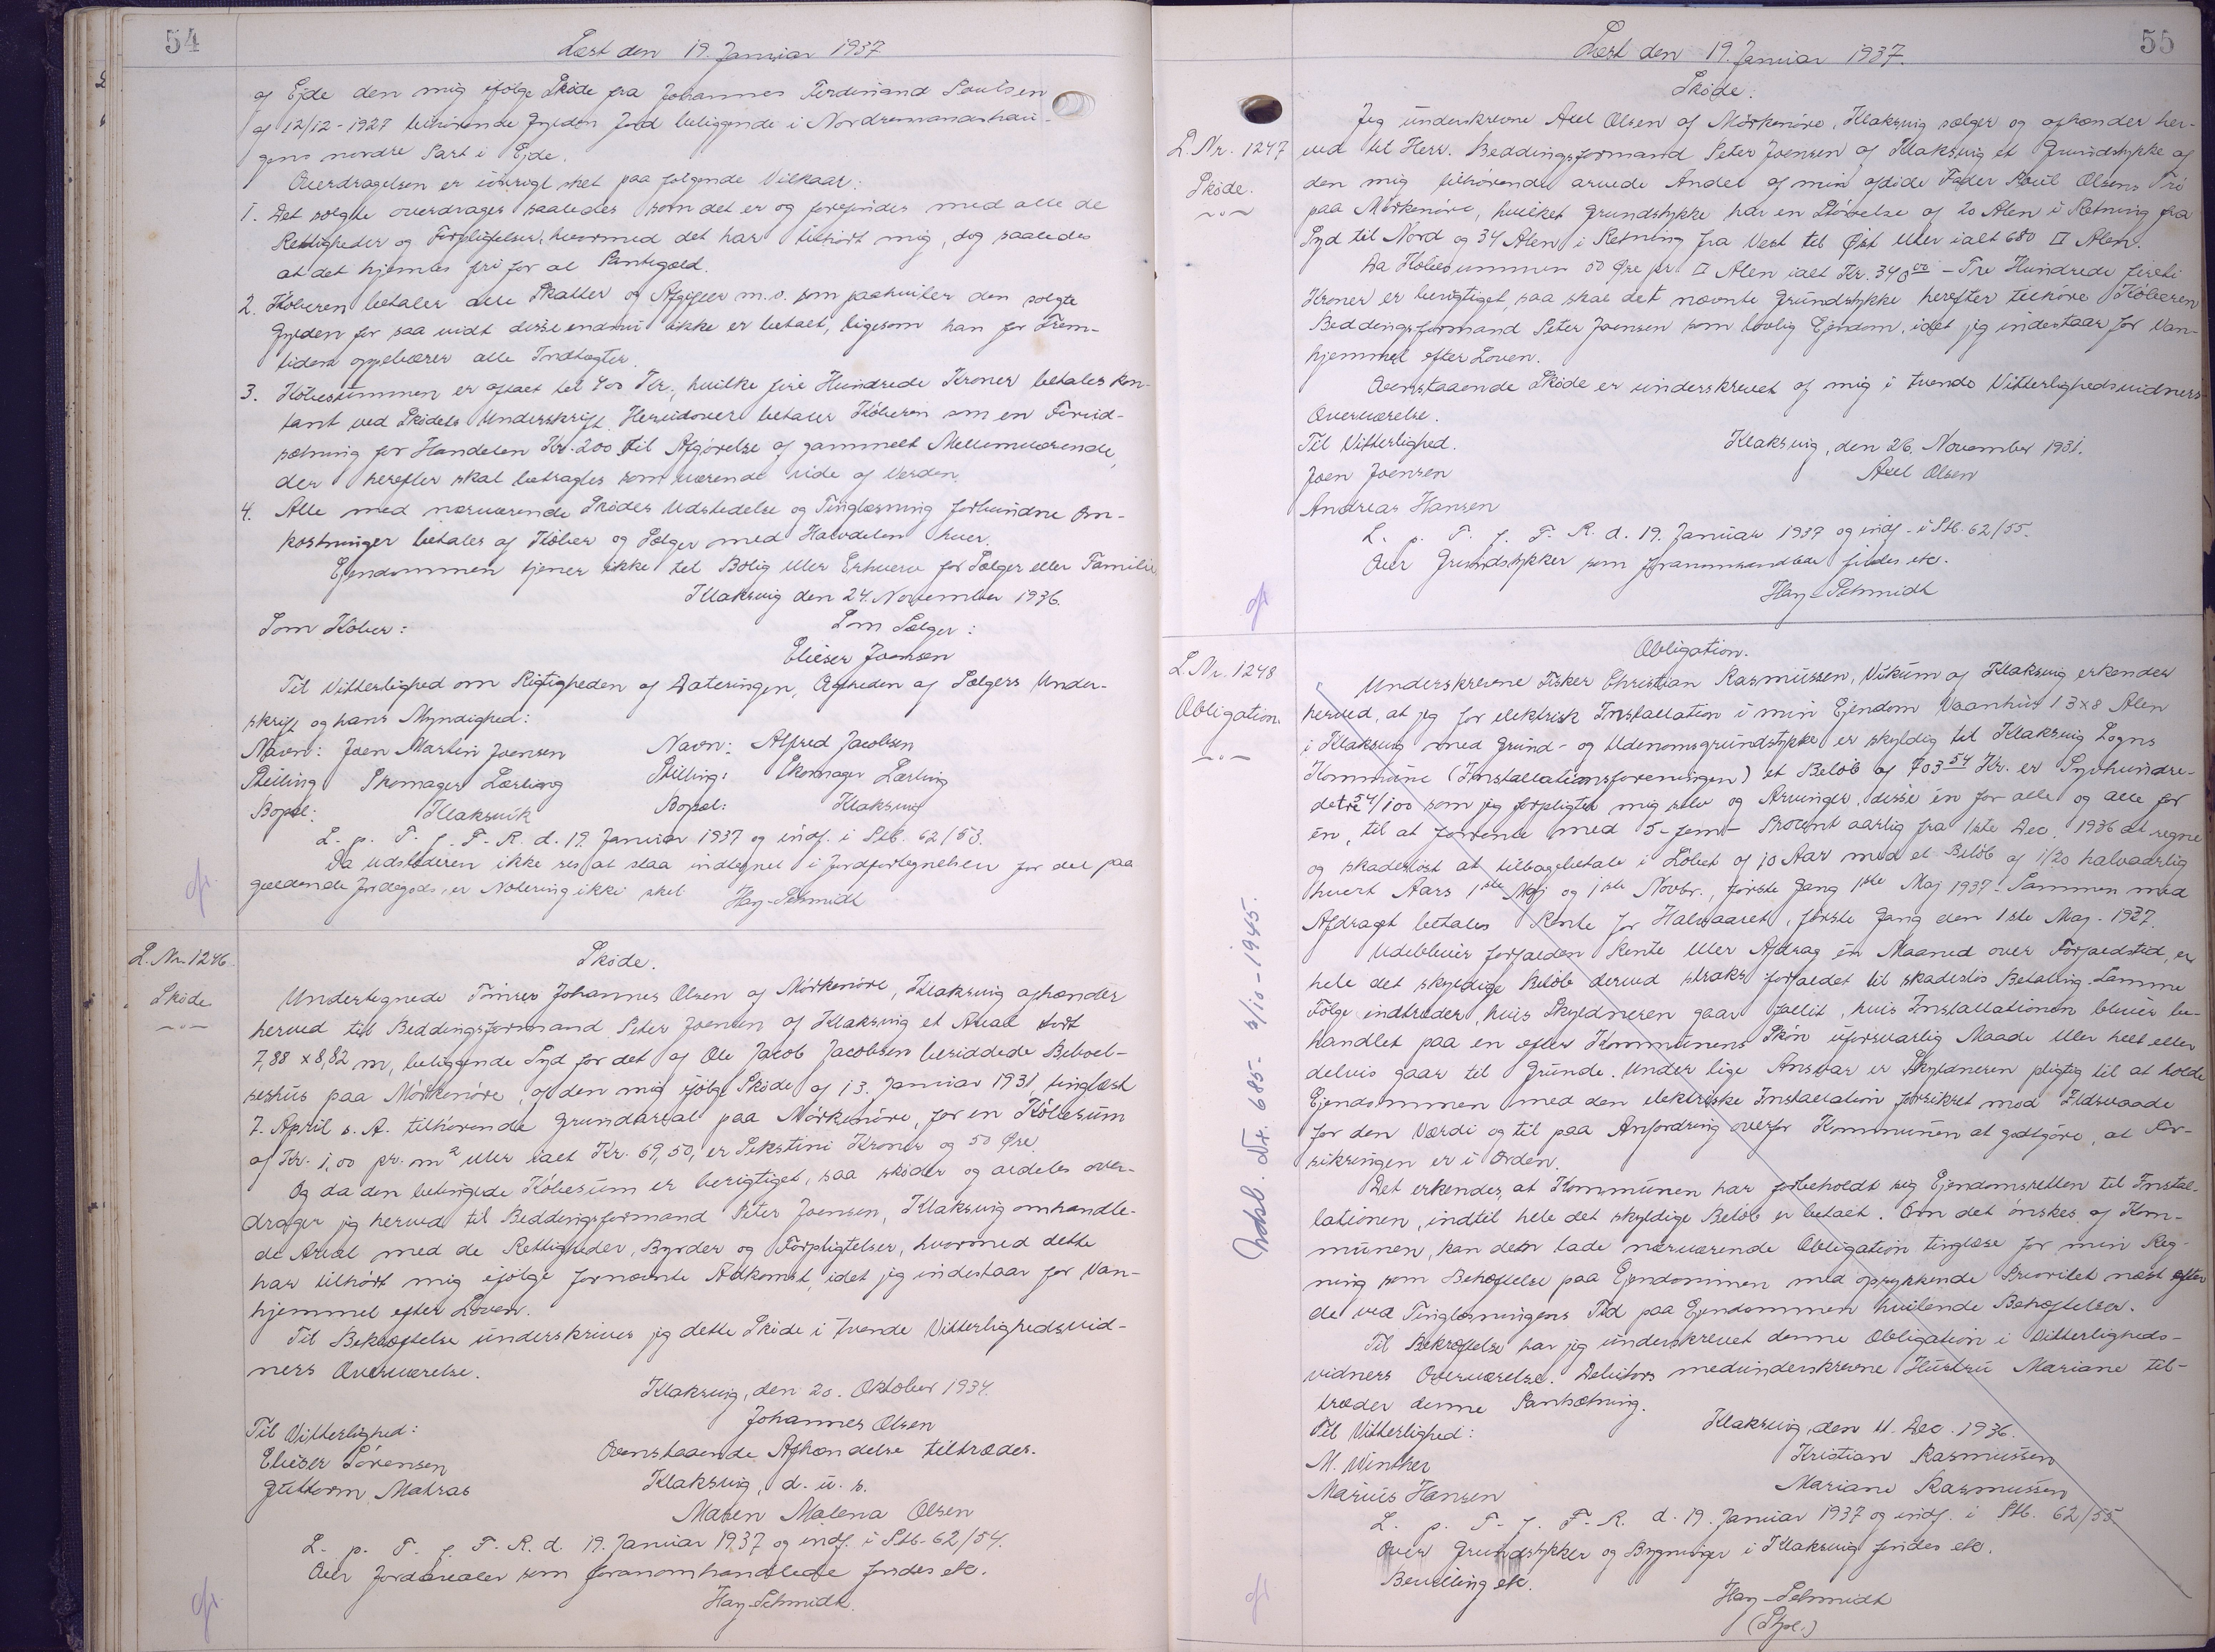 54
Læst den 19. Januar 1937
af Ejde den mig ifølge Skøde fra Johannes Ferdinand Poulsen
af 12/12-1927 tilhørende Gylden Jord beliggende i Nordremandshau-
gens nordre Part i Ejde.
Overdragelsen er iøvrigt sket paa følgende Vilkaar:
1. Det solgte overdrages saaledes som det er og forefindes med alle de
Rettigheder og Forpligtelser, hvormed det har tilhørt mig, dog saaledes
at det hjemles fri for al Pantegæld.
2. Køberen betaler alle Skatter og Afgifter m.v. som paahviler den solgte
Gylden for saa vidt disse endnu ikke er betalt, ligesom han for Frem-
tiden oppebærer alle Indtægter.
3. Købesummen er aftalt til 400 Kr., hvilke fire Hundrede Kroner betales kon-
tant ved Skødets Underskrift. Herudover betaler Køberen som en Forud-
sætning for Handelen Kr. 200 til Afgørelse af gammelt Mellemværende,
der herefter skal betragtes som værende ude af Verden.
4. Alle med nærværende Skødes Udstedelse og Tinglæsning forbundne Om-
kostninger betales af Køber og Sælger med Halvdelen hver.
Ejendommen tjener ikke til Bolig eller Erhverv for Sælger eller Familie.
Klaksvig den 24. November 1936.
Som Køber: Som Sælger:
Elieser Joensen
Til Vitterlighed om Rigtigheden af Dateringen, Ægtheden af Sælgers Under-
skrift og hans Myndighed:
Navn: Joen Martin Joensen Navn: Alfred Jacobsen
Stilling Skomager Lærling Stilling: Skomager Lærling
Bopæl: Klaksvik Bopæl: Klaksvig
L. p. T. f. F. R. d. 19. Januar 1937 og indf. i Stb. 62/53.
Da Udstederen ikke ses at staa indtegnet i Jordfortegnelsen for det paa-
gældende Jordegods, er Notering ikke sket Hay-Schmidt
L. Nr. 1246.
Skøde
Skøde.
Undertegnede Tømrer Johannes Olsen af Mörkenöre, Klaksvig afhænder
herved til Beddingsformand Peter Joensen af Klaksvig et Areal stort
7,88 x 8,82 m, beliggende Syd for det af Ole Jacob Jacobsen besiddede Beboel-
seshus paa Mörkenöre, af den mig ifølge Skøde af 13. Januar 1931, tinglæst
7. April s. A. tilhørende Grundareal paa Mörkenöre, for en Købesum
af Kr. 1,00 pr. m² eller ialt Kr. 69,50, er Sekstini Kroner og 50 Øre.
Og da den betingede Købesum er berigtiget, saa skøder og aldeles over-
drager jeg herved til Beddingsformand Peter Joensen, Klaksvig omhandle-
de Areal med de Rettigheder, Byrder og Forpligtelser, hvormed dette
har tilhørt mig ifølge fornævnte Adkomst, idet jeg indestaar for Van-
hjemmel efter Loven.
Til Bekræftelse underskriver jeg dette Skøde i tvende Vitterlighedsvid-
ners Overværelse.
Klaksvig, den 20. Oktober 1934.
Johannes Olsen
Til Vitterlighed:
Elieser Sörensen Ovenstaaende Afhændelse tiltrædes.
Guttorm Matras Klaksvig, d. u. s.
Maren Malena Olsen
L. p. T. f. F. R. d. 19. Januar 1937 og indf. i Stb. 62/54.
Over Jordarealer som foranomhandlede findes etc.
Hay-Schmidt.
55
Læst den 19. Januar 1937.
L. Nr. 1247
Skøde.
Skøde.
Jeg underskrevne Axel Olsen af Mörkenöre, Klaksvig sælger og afhænder her-
ved til Herr. Beddingsformand Peter Joensen af Klaksvig et Grundstykke af
den mig tilhørende arvede Andel af min afdøde Fader Poul Olsens Trö
paa Mörkenöre, hvilket Grundstykke har en Størrelse af 20 Alen i Retning fra
Syd til Nord og 34 Alen i Retning fra Vest til Øst eller ialt 680 □ Alen.
Da Købesummen 50 Øre pr. □ Alen ialt Kr. 340 00 - Tre Hundrede fireti
Kroner er berigtiget, saa skal det nævnte Grundstykke herefter tilhøre Køberen
Beddingsformand Peter Joensen som lovlig Ejendom, idet jeg indestaar for Van-
hjemmel efter Loven.
Ovenstaaende Skøde er underskrevet af mig i tvende Vitterlighedsvidners
Overværelse.
Til Vitterlighed. Klaksvig, den 26. November 1931.
Joen Joensen Axel Olsen
Andreas Hansen
L. p. T. f. F. R. d. 19. Januar 1937 og indf. i Stb. 62/55.
Over Grundstykker som foranomhandlede findes etc.
Hay-Schmidt
L. Nr. 1248
Obligation.
Obligation.
Underskrevne Fisker Christian Rasmussen, Vikum af Klaksvig erkender
herved, at jeg for elektrisk Installation i min Ejendom Vaanhus 13x8 Alen
i Klaksvig med Grund- og Udenomsgrundstykke er skyldig til Klaksvig Sogns
Kommune (Installationsforeningen) et Beløb af 703 54 Kr. er Syvhundre-
detre 54/100 som jeg forpligter mig selv og Arvinger, disse en for alle og alle for
en, til at forrente med 5-fem- Procent aarlig fra 1ste Dec. 1936 at regne
og skadesløst at tilbagebetale i Løbet af 10 Aar med et Beløb af 1/20 halvaarlig
hvert Aars 1ste Maj og 1ste Novbr., første Gang 1ste Maj 1937. Sammen med
Afdraget betales Rente for Halvaaret, første Gang den 1ste Maj 1937.
Udebliver forfalden Rente eller Afdrag en Maaned over Forfaldstid, er
hele det skyldige Beløb derved straks forfaldet til skadesløs Betaling. Samme
Følge indtræder, hvis Skyldneren gaar fallit, hvis Installationen bliver be-
handlet paa en efter Kommunens Skøn uforsvarlig Maade eller helt eller
delvis gaar til Grunde. Under lige Ansvar er Skyldneren pligtig til at holde
Ejendommen med den elektriske Installation forsikret mod Ildsvaade
for den Værdi og til paa Anfordring overfor Kommunen at godtgøre, at For-
sikringen er i Orden.
Det erkendes, at Kommunen har forbeholdt sig Ejendomsretten til Instal-
lationen, indtil hele det skyldige Beløb er betalt. Om det ønskes af Kom-
munen, kan den lade nærværende Obligation tinglæse for min Reg-
ning som Behæftelse paa Ejendommen med oprykkende Prioritet næst efter
de ved Tinglæsningens Tid paa Ejendommen hvilende Behæftelser.
Til Bekræftelse har jeg underskrevet denne Obligation i Vitterligheds-
vidners Overværelse. Debitors medunderskrevne Hustru Mariane til-
træder denne Pantsætning.
Til Vitterlighed: Klaksvig, den 11. Dec. 1936.
M. Winther Kristian Rasmussen
Marius Hansen Mariane Rasmussen
L. p. T. f. F. R. d. 19. Januar 1937 og indf. i Stb. 62/55
Over Grundstykker og Bygninger i Klaksvig findes etc.
Bevilling etc.
Hay-Schmidt
Udsl. Nr. 685 - 3/10 - 1945.